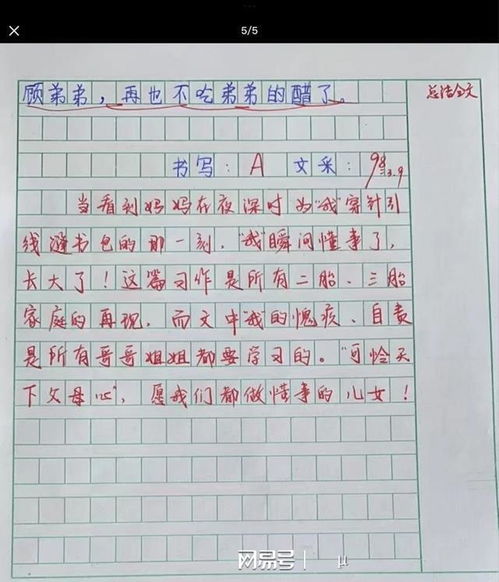 5/5
顾弟弟，再也不吃弟弟的醋了。
总结全文
书写：A 文采：98
3.9
当看到妈妈在夜深时为"我"穿针引
线缝书包的那一刻，"我"瞬间懂事了，
长大了！这篇习作是所有二胎、三胎
家庭的再现，而文中"我"的愧疚、自责
是所有哥哥姐姐都要学习的。"可怜天
下父母心"，愿我们都做懂事的儿女！
网易号